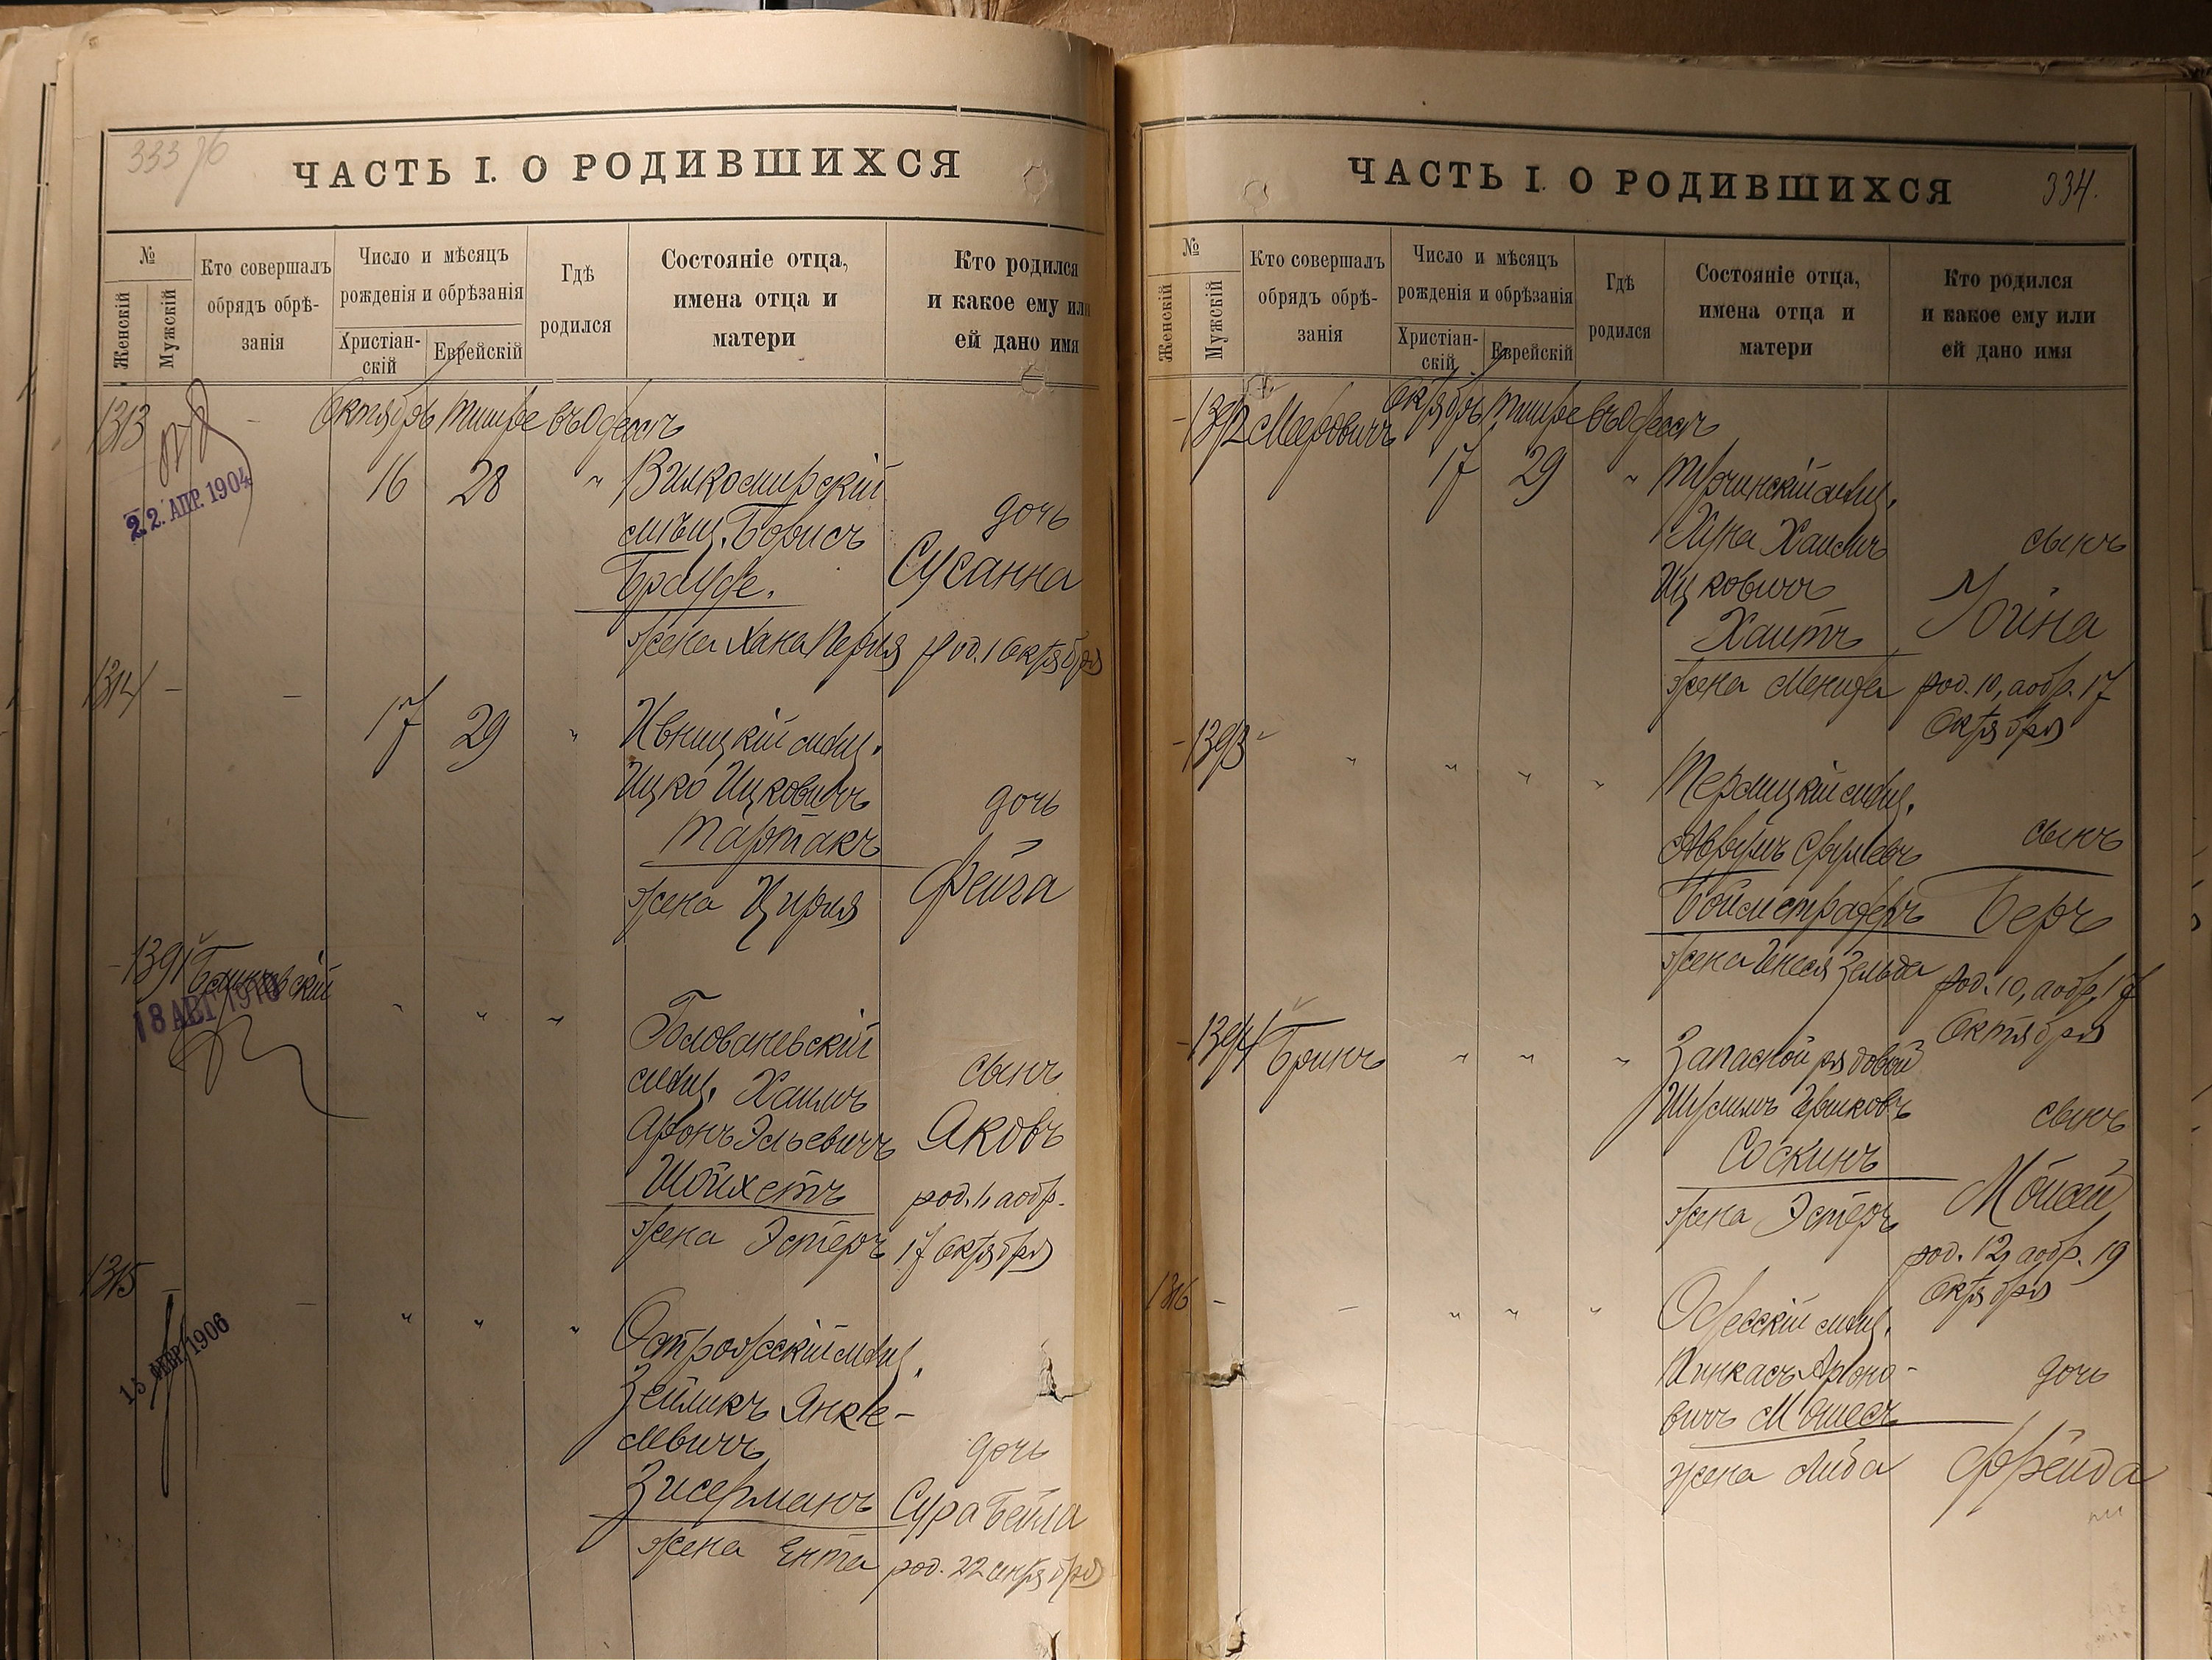 333
ЧАСТЬ I. О РОДИВШИХСЯ
№
Женскій
Мужскій
Кто совершалъ
обрядъ обрѣ-
занія
Число и мѣсяцъ
рожденія и обрѣзанія
Христіан-
скій
Еврейскій
Гдѣ
родился
Состояніе отца,
имена отца и
матери
Кто родился
и какое ему или
ей дано имя
1313
22. АПР. 1904
Октябрь Тишре въ Одессѣ
16 28 " Вилкомирскій
мѣщ. Борисъ
Брауде.
жена Хана Перля
дочь
Сусанна
род. 1 Октября
1314 - -
17 29 " Ивницкій мѣщ.
Ицко Ицковичъ
Тартакъ
жена Цирля
дочь
Фейга
-1391
18 АВГ 1910
" " " Голованевскій
мѣщ. Хаимъ
Аронъ Эльевичъ
Шойхетъ
жена Эстеръ
сынъ
Яковъ
17 Октября
1315 - -
15 ФЕВР. 1906
" " " Острожскій мѣщ.
Зейликъ Янке-
левичъ
Зисерманъ
жена Ента
дочь
Сура Бейла
род. 22 октября
ЧАСТЬ I. О РОДИВШИХСЯ
334.
№
Женскій
Мужскій
Кто совершалъ
обрядъ обрѣ-
занія
Число и мѣсяцъ
рожденія и обрѣзанія
Христіан-
скій
Еврейскій
Гдѣ
родился
Состояніе отца,
имена отца и
матери
Кто родился
и какое ему или
ей дано имя
-1392 Меерович Октябрь Тишре въ Одессѣ
17 29 " мѣщ.
Хуна Хаимъ
Ицковичъ
Хаитъ
жена Менуха
сынъ
Іойна
род. 10, а обр. 17
Октября
-1393 " " " " мѣщ.
Аврумъ Срулевъ
Бойместрадеръ
жена Зельда
сынъ
Беръ
род. 10, а обр. 17
Октября
-1394 Бринъ " " " Запасной рядовой
Шусимъ
Соскинъ
жена Эстеръ
сынъ
Мойсей
род. 12, а обр. 19
Октября
1316 - - " " " Одесскій мѣщ.
Пинкасъ Ароно-
вичъ Мошесъ
жена Либа
дочь
Фрейда